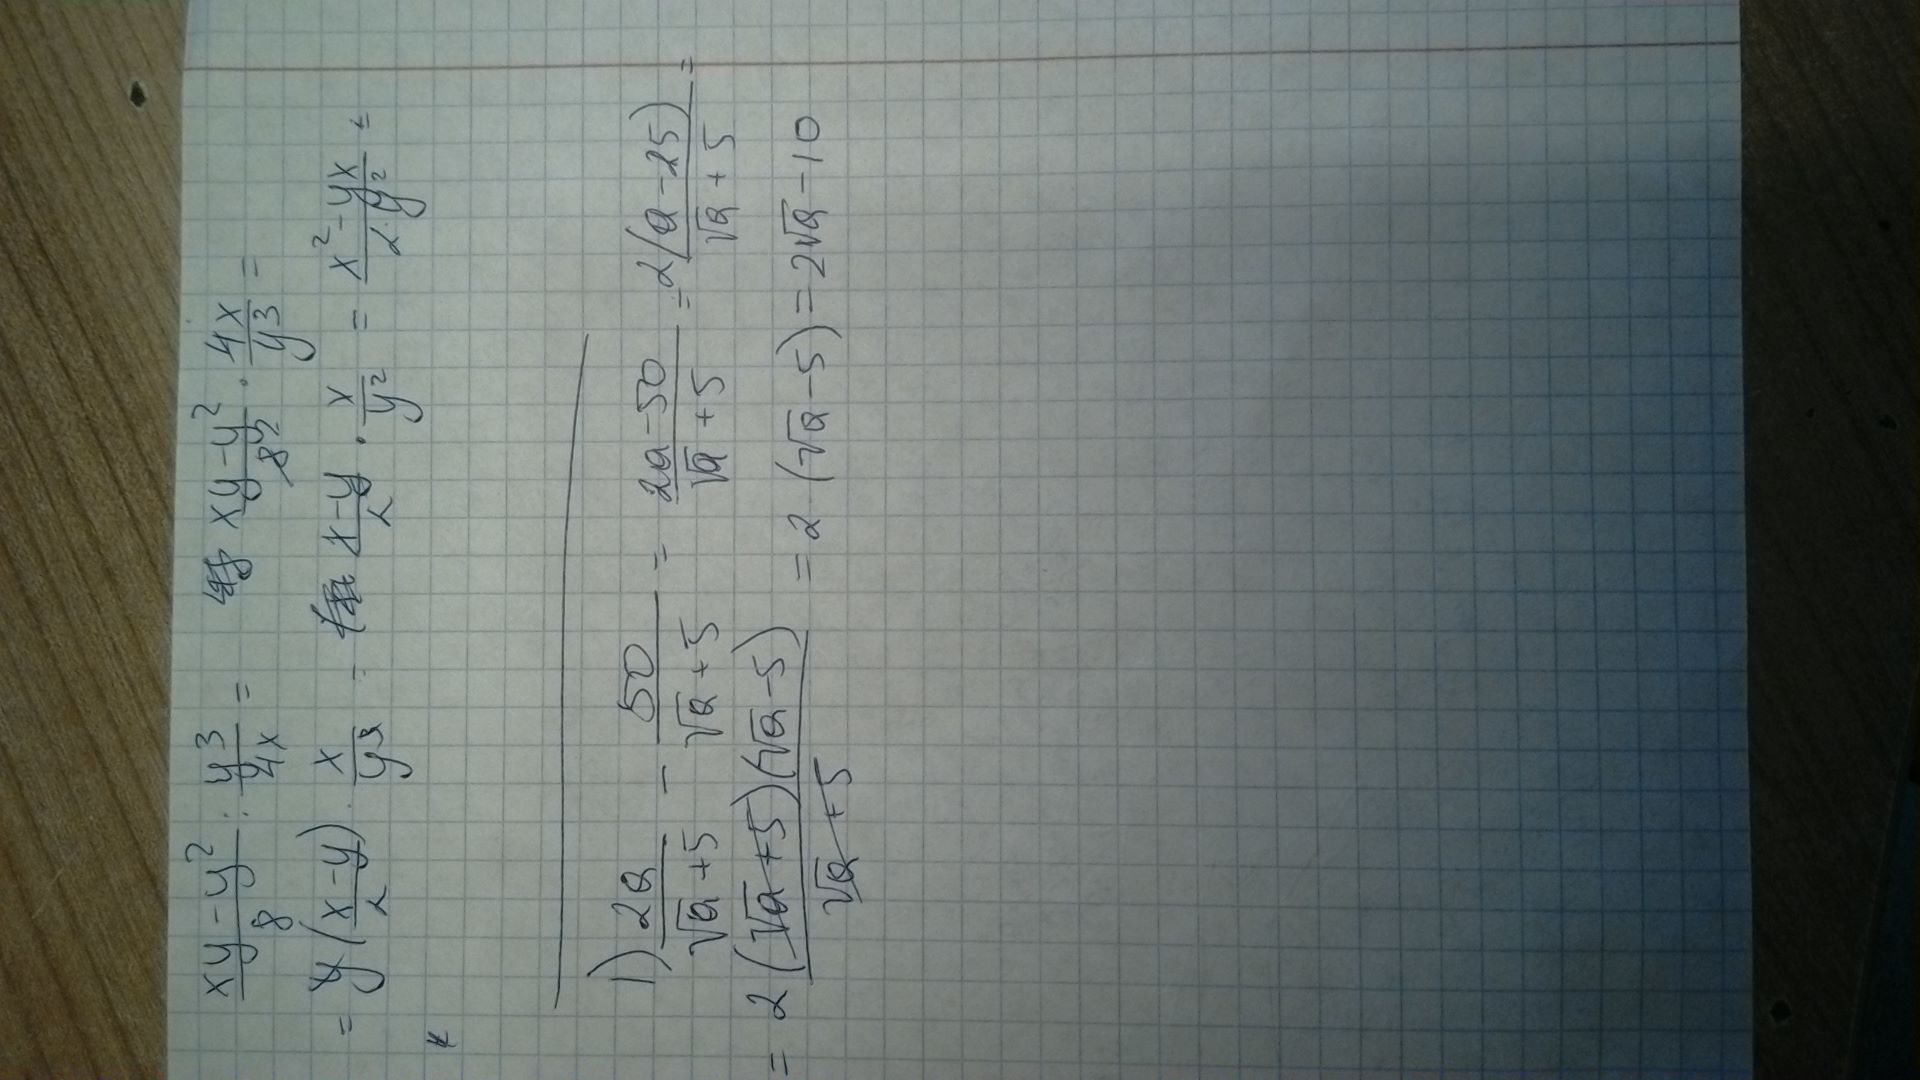 (xy - y²)/8 : y³/4x = (xy - y²)/8₂ · 4x/y³ =
= y(x - y)/2 · x/y³ = (x - y)/2 · x/y² = (x² - yx)/(2·y²) =
1) 2a/(√a + 5) - 50/(√a + 5) = (2a - 50)/(√a + 5) = 2(a - 25)/(√a + 5) =
= 2(√a + 5)(√a - 5)/(√a + 5) = 2·(√a - 5) = 2√a - 10